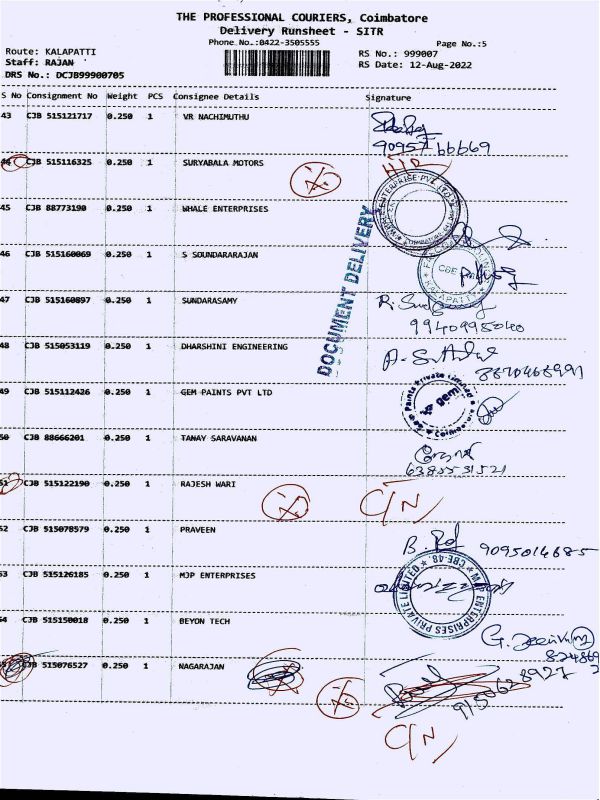 THE PROFESSIONAL COURIERS, Coimbatore
Delivery Runsheet - SITR
Phone No.:0422-3505555
Page No.:5
Route: KALAPATTI
RS No.: 999007
Staff: RAJAN
RS Date: 12-Aug-2022
DRS No.: DCJB99900705
S No Consignment No Weight PCS Consignee Details Signature
43 CJB 515121717 0.250 1 VR NACHIMUTHU
44 CJB 515116325 0.250 1 SURYABALA MOTORS
45 CJB 88773190 0.250 1 WHALE ENTERPRISES
46 CJB 515160069 0.250 1 S SOUNDARARAJAN
DOCUMENT DELIVERY
47 CJB 515160897 0.250 1 SUNDARASAMY
9940995040
48 CJB 515053119 0.250 1 DHARSHINI ENGINEERING
8870468991
49 CJB 515112426 0.250 1 GEM PAINTS PVT LTD
gem
50 CJB 88666201 0.250 1 TANAY SARAVANAN
6385531521
51 CJB 515122190 0.250 1 RAJESH WARI C/N
52 CJB 515078579 0.250 1 PRAVEEN
9095014685
53 CJB 515126185 0.250 1 MJP ENTERPRISES
ENTERPRISES PRIVATE LIMITED * CBE-48.
54 CJB 515150018 0.250 1 BEYON TECH
CJB 515076527 0.250 1 NAGARAJAN
C/N